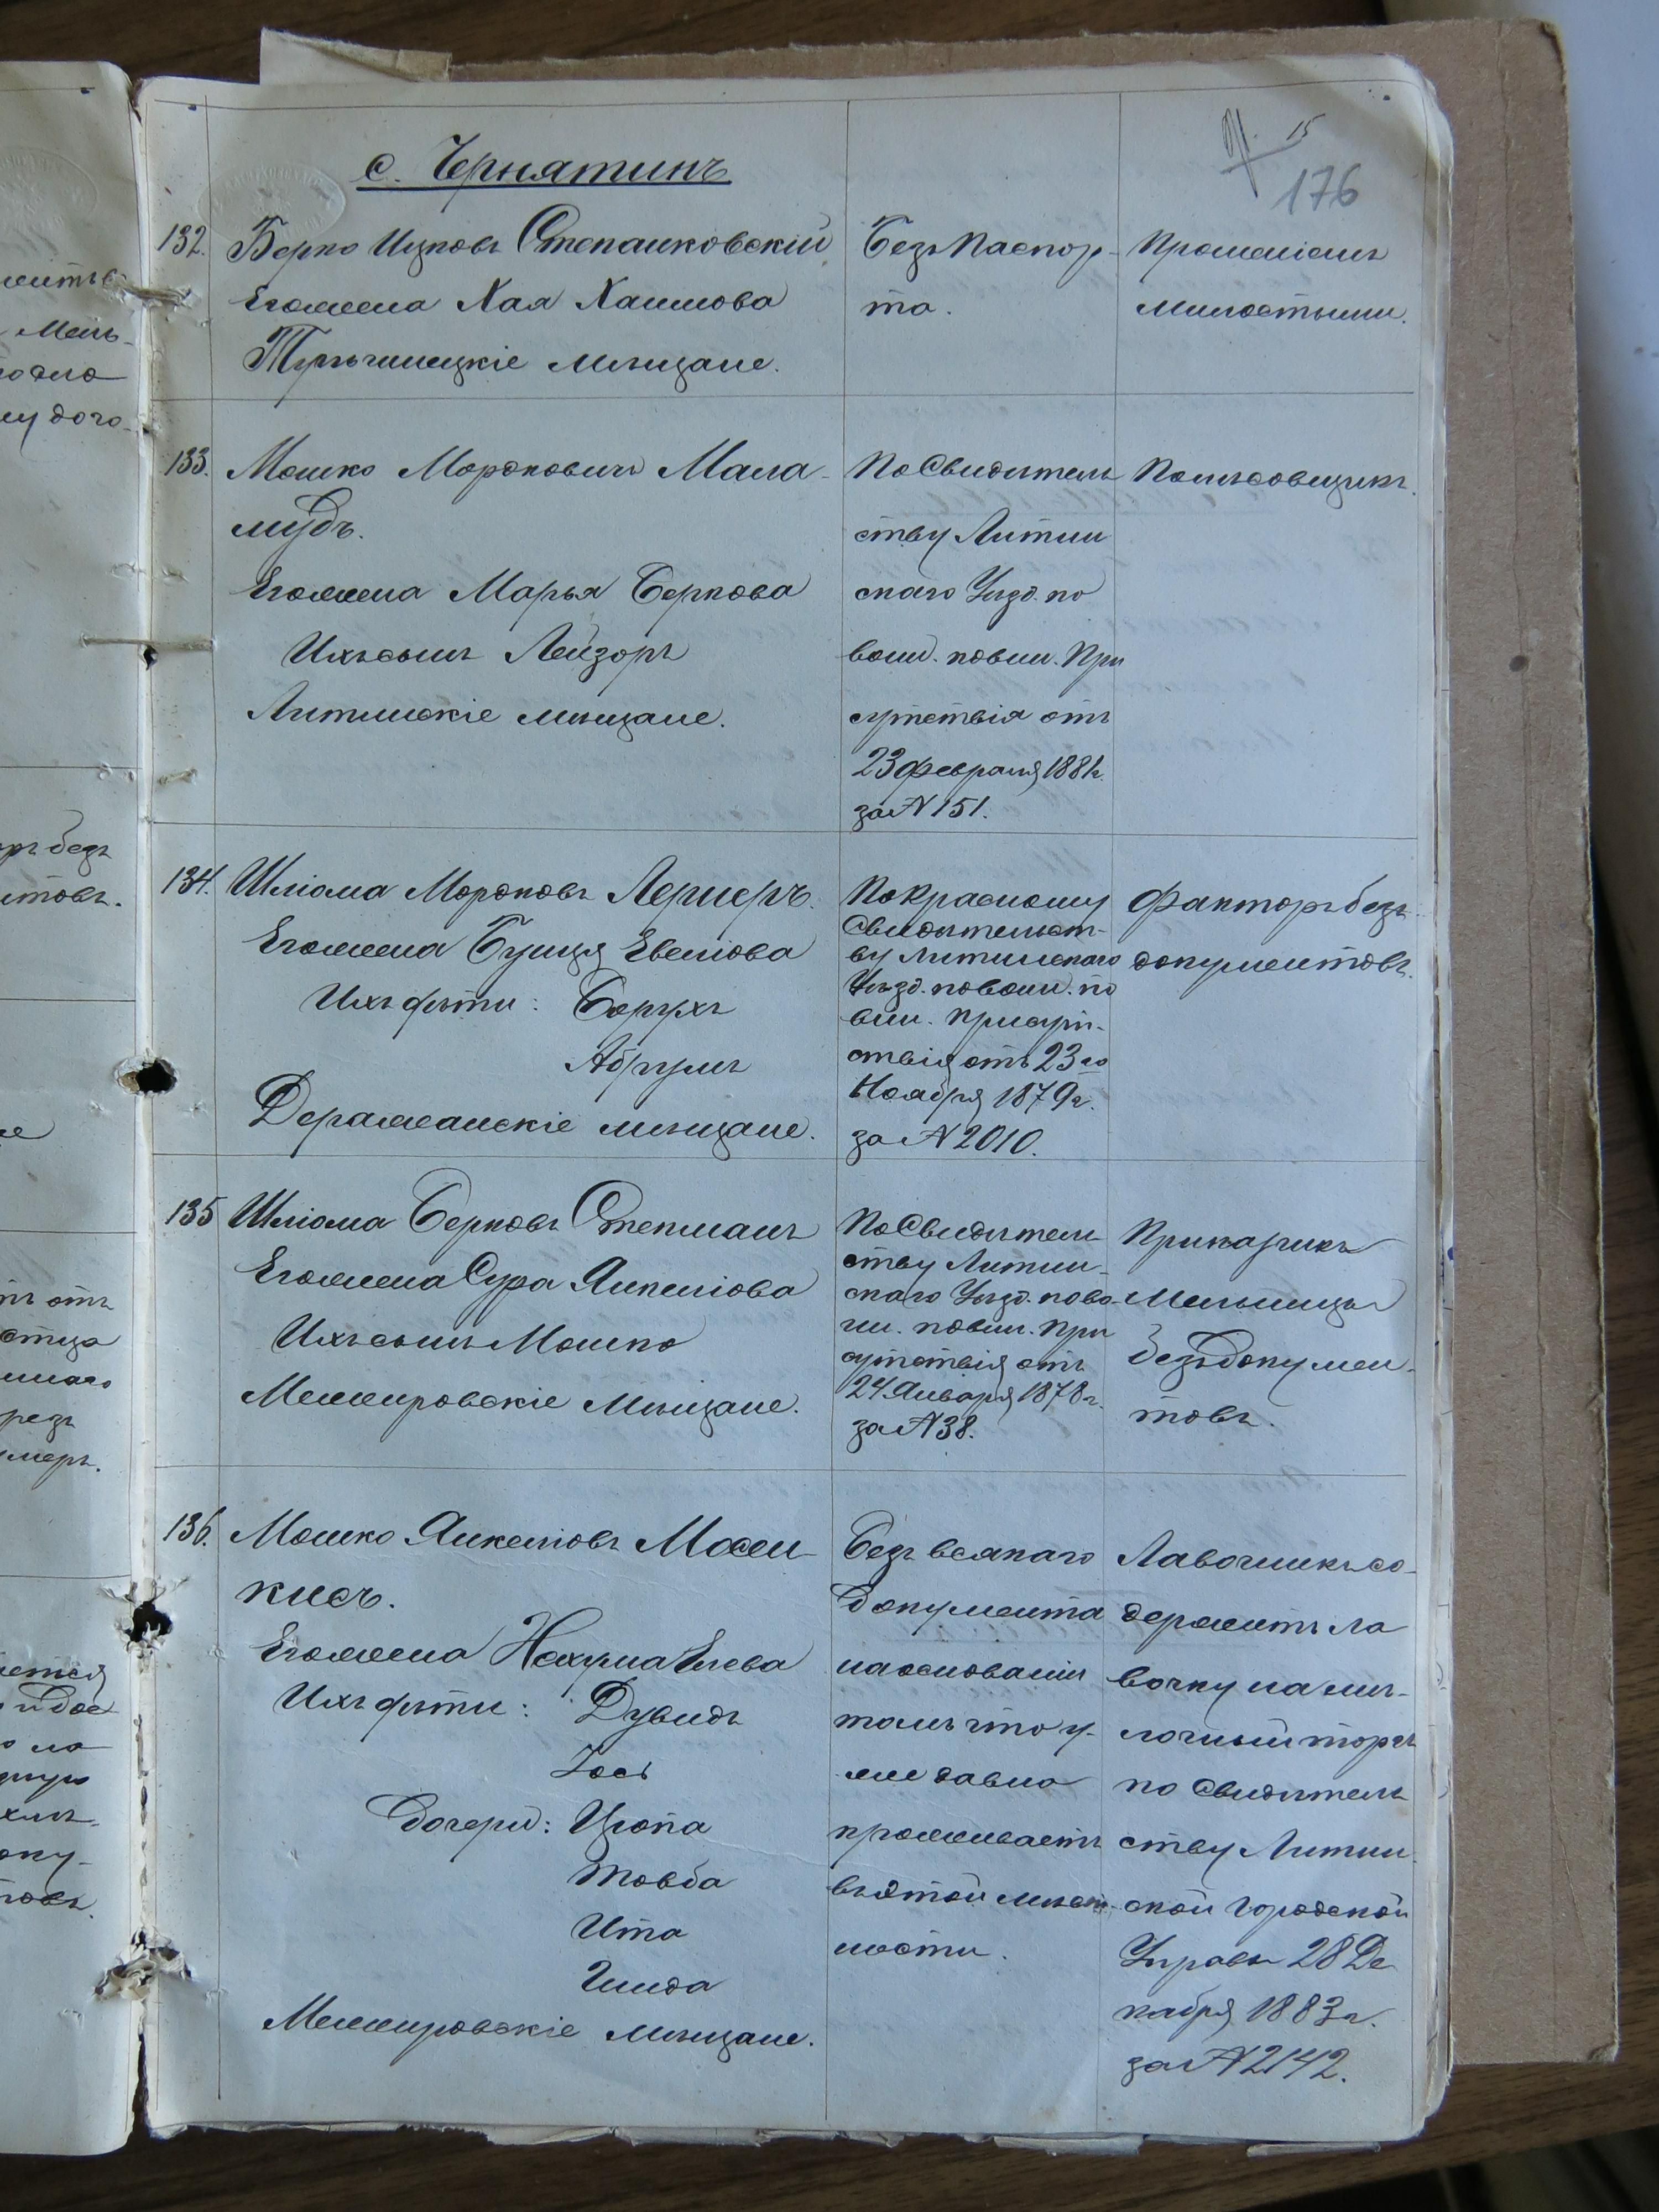 15
176
с. Чернятинъ
132. Берко Ицковъ Степанковскій
Его жена Хая Хаимова
Тульчинецкіе мѣщане.
Безъ паспор-
та.
Прошеніемъ
милостыни.
133. Мошко Мордковичъ Мала-
мудъ.
Его жена Марья Беркова
Ихъ сынъ Лейзоръ
Литинскіе мѣщане.
По Свидѣтель
ству Литин
скаго Уѣзд. по
воин. повин. При
сутствія отъ
23 февраля 1881 г.
за № 151.
Полѣсовщикъ.
134. Шліома Мордковъ Лернеръ.
Его жена Буция Евеліова
Ихъ дѣти: Борухъ
Абрумъ
Деражнанскіе мѣщане.
По Красному
Свидѣтельст-
ву Литинскаго
Уѣзд. по воин. по
вин. Присут-
ствія отъ 23го
Ноября 1879 г.
за № 2010.
Факторъ безъ
документовъ.
135 Шліома Берковъ Степманъ
Его жена Сура Янкеліова
Ихъ сынъ Мошко
Межировскіе Мѣщане.
По Свидѣтель
ству Литин-
скаго Уѣзд. по во-
ин. повин. При
сутствія отъ
24 Января 1878 г.
за № 38.
Прикащикъ
Мельницы
безъ докумен-
товъ.
136. Мошко Янкеліовъ Косен-
кисъ.
Его жена Нехума Елева
Ихъ дѣти: Дувидъ
Зось
дочери: Цюпа
Товба
Ита
Гинда
Межировскіе мѣщане.
Безъ всякаго
документа
на основаніи
томъ что у-
же давно
проживаетъ
въ этой мѣст-
ности.
Лавочникъ со-
держитъ ла
вочку на ме-
лочный торгъ
по Свидѣтель
ству Литин-
ской Городской
Управы 28 Де
кабря 1883 г.
за № 2142.